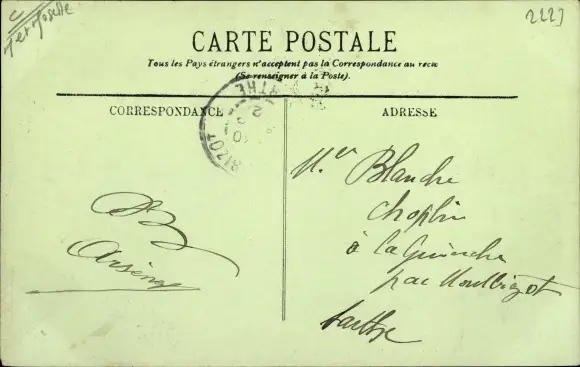 et Moselle
2223
CARTE POSTALE
Tous les Pays étrangers n'acceptent pas la Correspondance au recto
(Se renseigner à la Poste).
CORRESPONDANCE
ADRESSE
Blanche
Choplin
à la Guinche
par Montbizot
Sarthe
Arsène